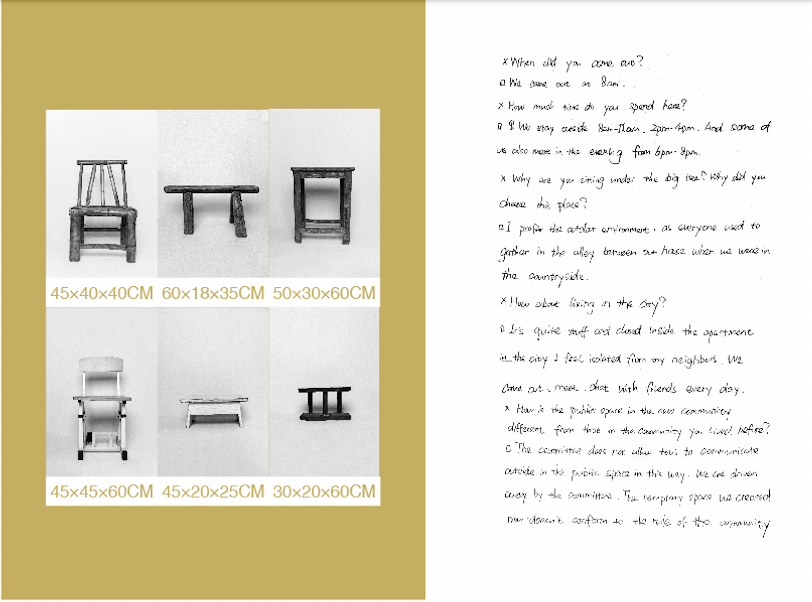 45×40×40CM 60×18×35CM 50×30×60CM
45×45×60CM 45×20×25CM 30×20×60CM
x When did you come out?
o We come out at 8am.
x How much time do you spend here?
o We stay outside 8am-11am, 2pm-4pm. And some of
us also meet in the evening from 6pm-8pm.
x Why are you sitting under the big tree? Why did you
choose this place?
o I prefer the outdoor environment, as everyone used to
gather in the alley between our house when we were in
the countryside.
x How about living in the city?
o It's quite stuff and closed inside the apartment
in the city. I feel isolated from my neighbors. We
come out, meet, chat with friends every day.
x How is the public space in the new community
different from that in the community you lived before?
o The committee does not allow us to communicate
outside in the public space in this way. We are driven
away by the committee. The temporary space we created
doesn't conform to the rule of the community